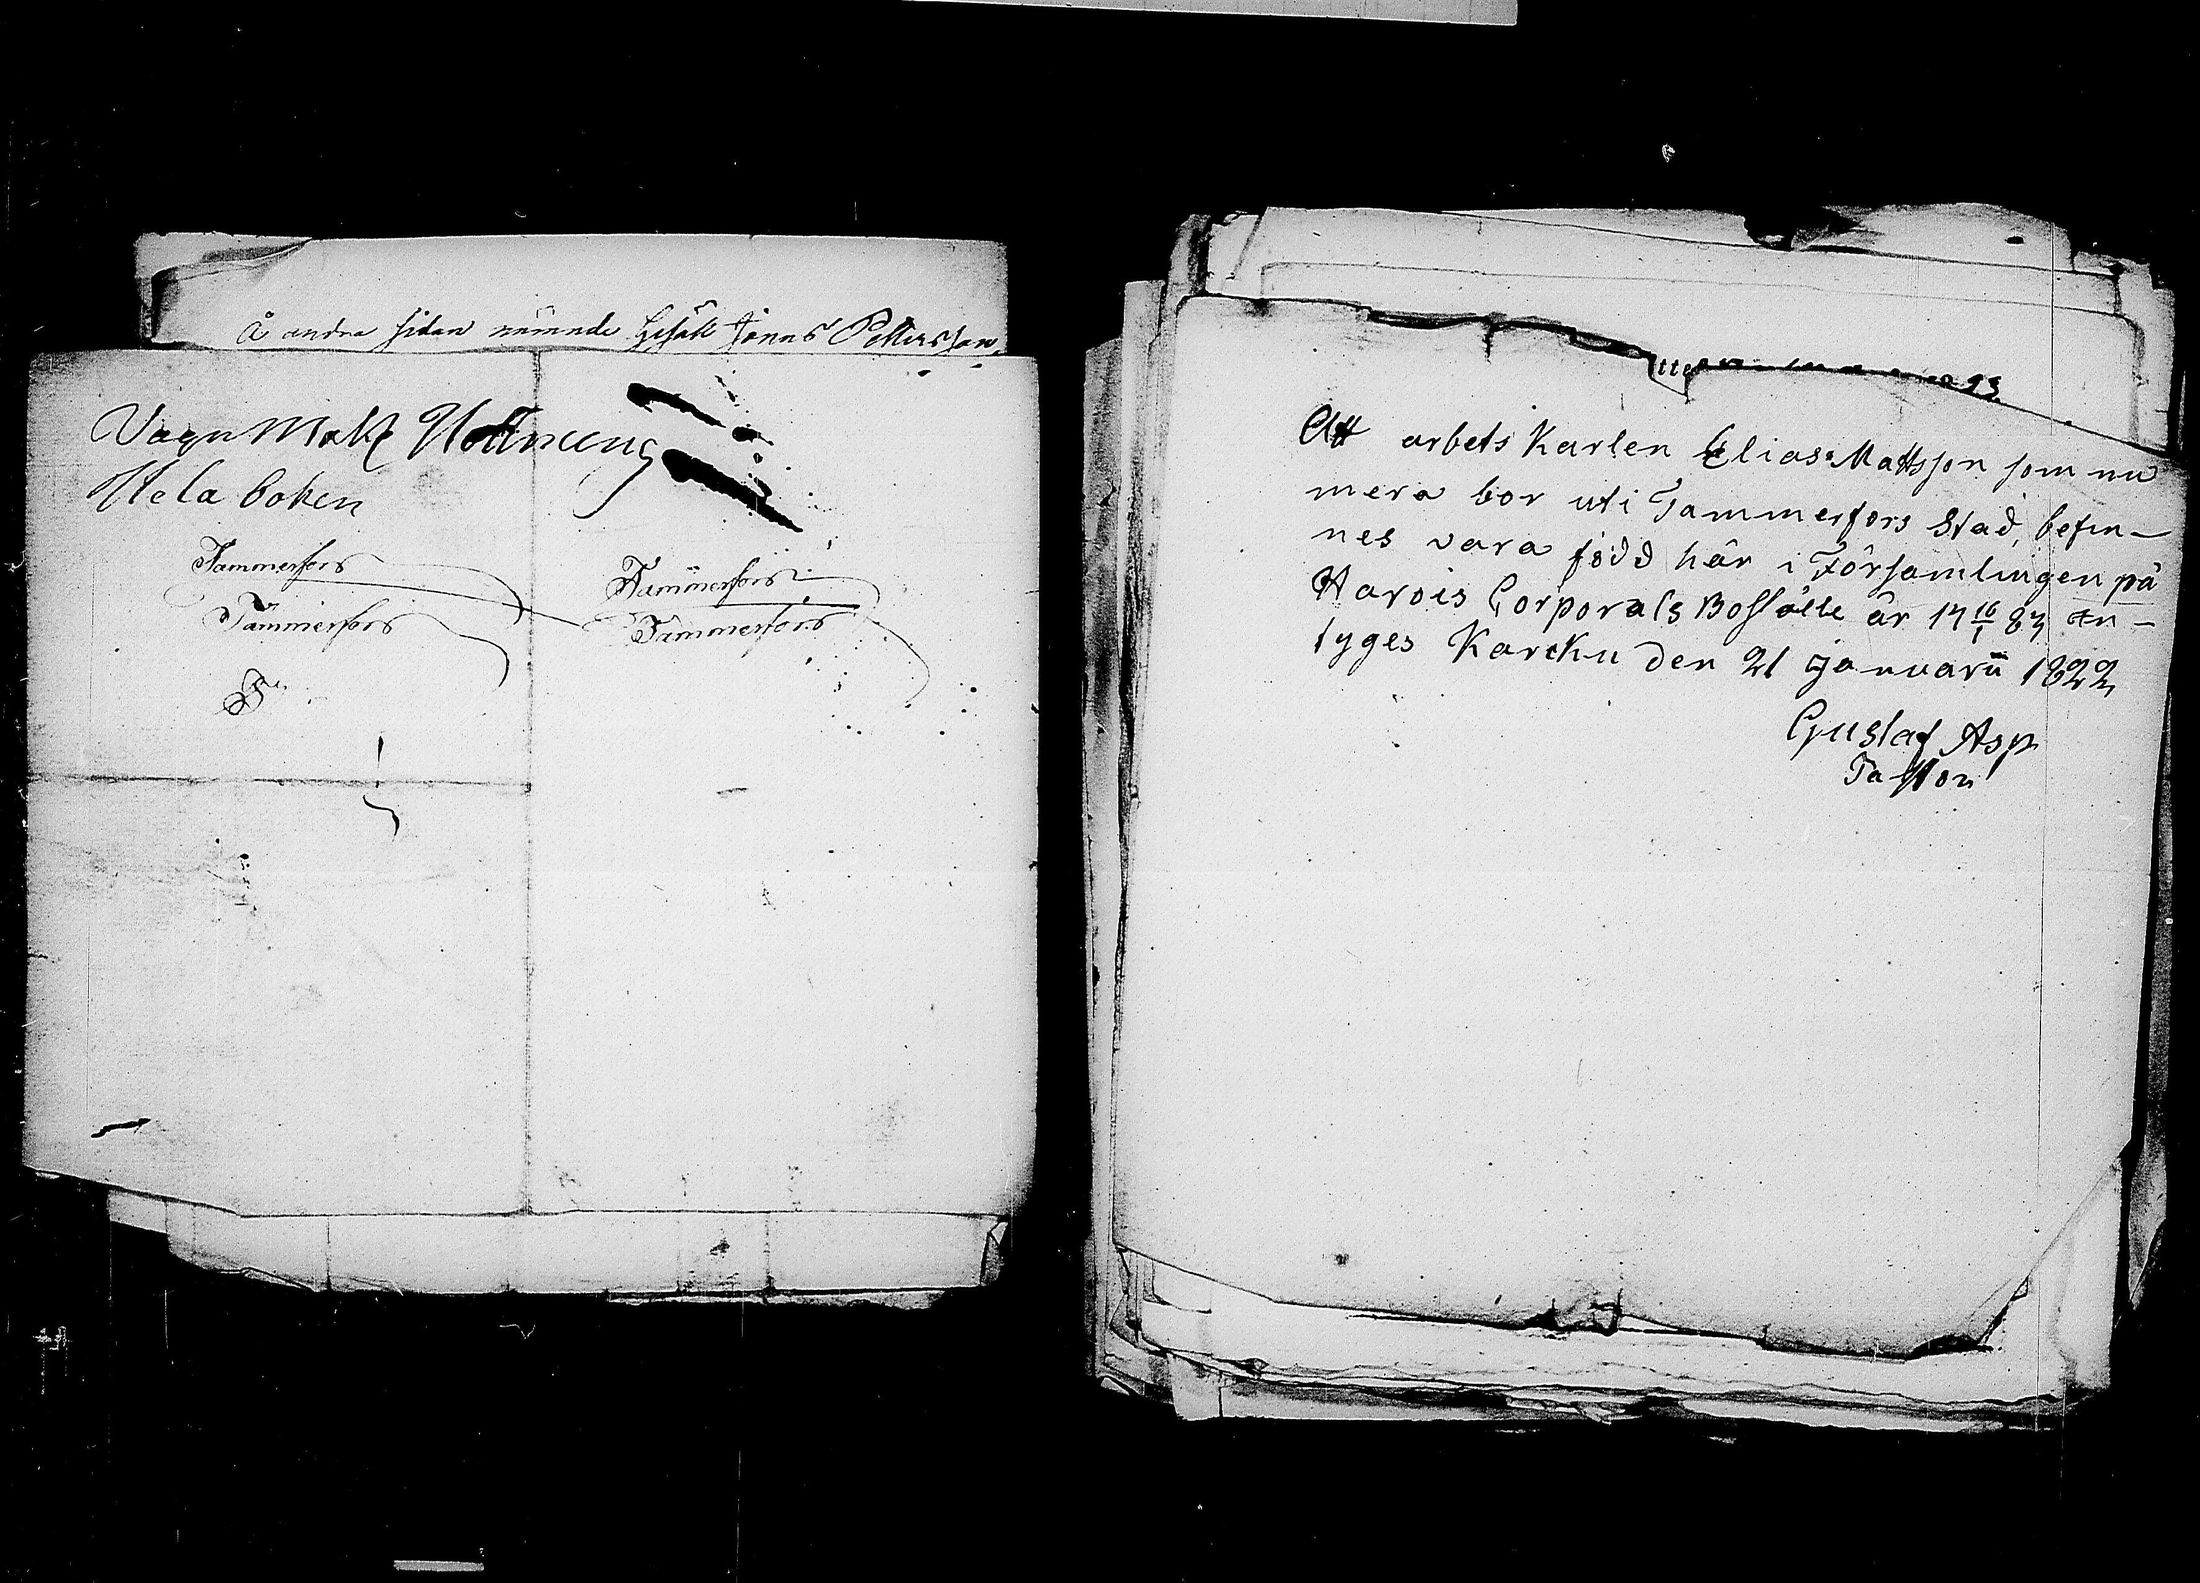 Å andra sidan nämnde Gesäll Jonas Pettersson,
Vagn Mak Holmung
Hela boken
Tammerfors
Tammerfors
Tammerfors
Tammerfors
T
Att arbets Karlen Elias Mattsson som nu
mera bor uti Tammerfors Stad, befin-
nes vara född här i Församlingen på
Harois Corporals Boställe år 17 16/1 83 in-
tyges Karcku den 21 januarii 1822,
Gustaf Asp
Pastor